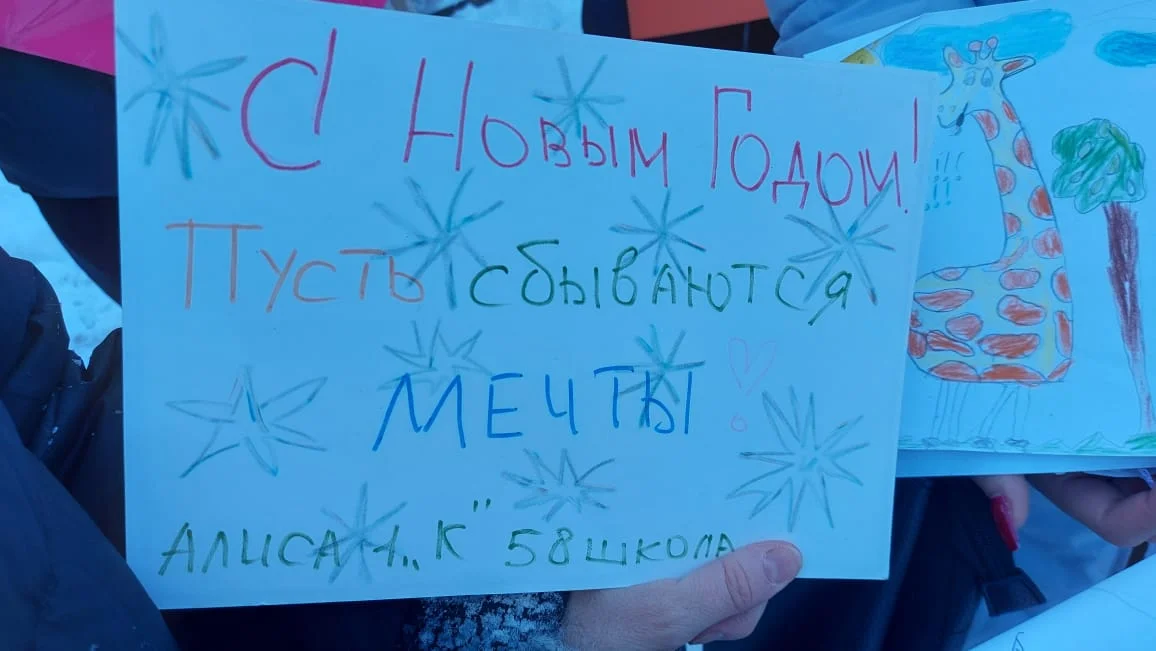 С Новым Годом!
Пусть сбываются
МЕЧТЫ!
АЛИСА 1 „К" 58 школа